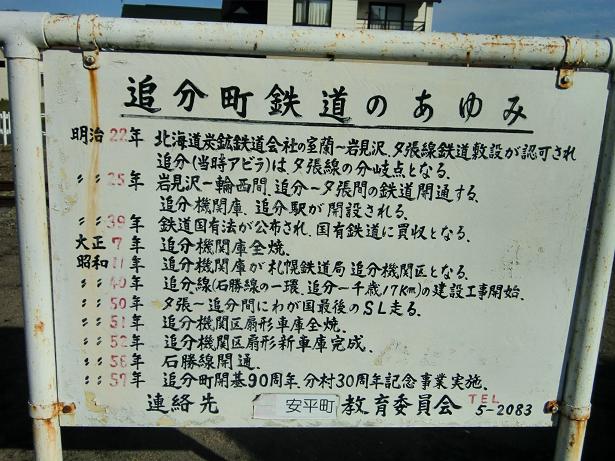 追分町鉄道のあゆみ
明治22年 北海道炭鉱鉄道会社の室蘭〜岩見沢、夕張線鉄道敷設が認可され
追分(当時アビラ)は、夕張線の分岐点となる。
〃25年 岩見沢ー輪西間、追分〜夕張間の鉄道開通する。
追分機関庫、追分駅が開設される。
〃39年 鉄道国有法が公布され、国有鉄道に買収となる。
大正7年 追分機関庫全焼.
昭和11年 追分機関庫が札幌鉄道局追分機関区となる。
〃40年 追分線(石勝線の一環、追分ー千歳17Km)の建設工事開始.
〃50年 夕張〜追分間にわが国最後のSL走る。
〃51年 追分機関区扇形車庫全焼、
〃52年 追分機関区扇形新車庫完成、
〃56年 石勝線開通.
〃57年 追分町開基90周年、分村30周年記念事業実施、
連絡先 安平町 教育委員会 TEL 5-2083